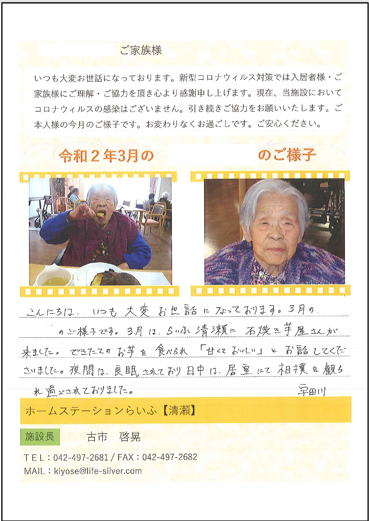 ご家族様
いつも大変お世話になっております。新型コロナウィルス対策では入居者様・ご
家族様にご理解・ご協力を頂き心より感謝申し上げます。現在、当施設において
コロナウィルスの感染はございません。引き続きご協力をお願いいたします。ご
本人様の今月のご様子です。お変わりなくお過ごしです。ご安心ください。
令和2年3月の のご様子
こんにちは、いつも大変お世話になっております。3月の
のご様子です。3月は、らいふ清瀬に石焼き芋屋さんが
来ました。できたてのお芋を食べられ「甘くておいしい」とお話してくだ
さいました。夜間は、良眠されており日中は、居室にて相撲を観ら
れ過ごされておりました。 早田川
ホームステーションらいふ【清瀬】
施設長 古市 啓晃
TEL：042-497-2681 / FAX：042-497-2682
MAIL：kiyose@life-silver.com